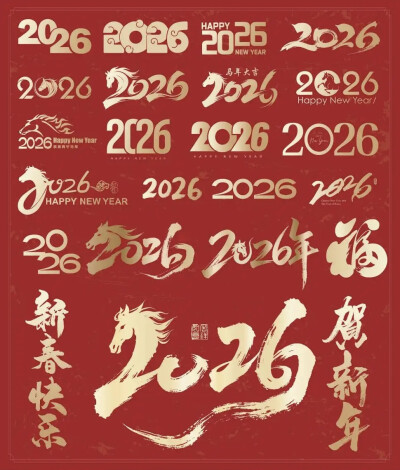 2026
2026
HAPPY
2026
NEW YEAR
2026
2026
2026
马年大吉
2026
2026
Happy New Year/
2026
Happy New Year
2026
HAPPY NEW YEAR
2026
HAPPY NEW YEAR
2026
2026
HAPPY NEW YEAR
2026
2026
2026
20
26
2026
2026年
福
新春快乐
2026
贺新年